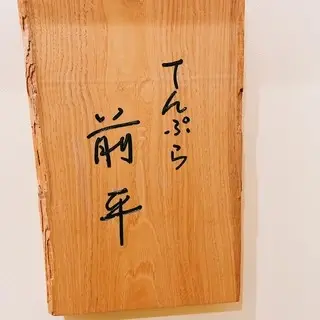 てんぷら
前平